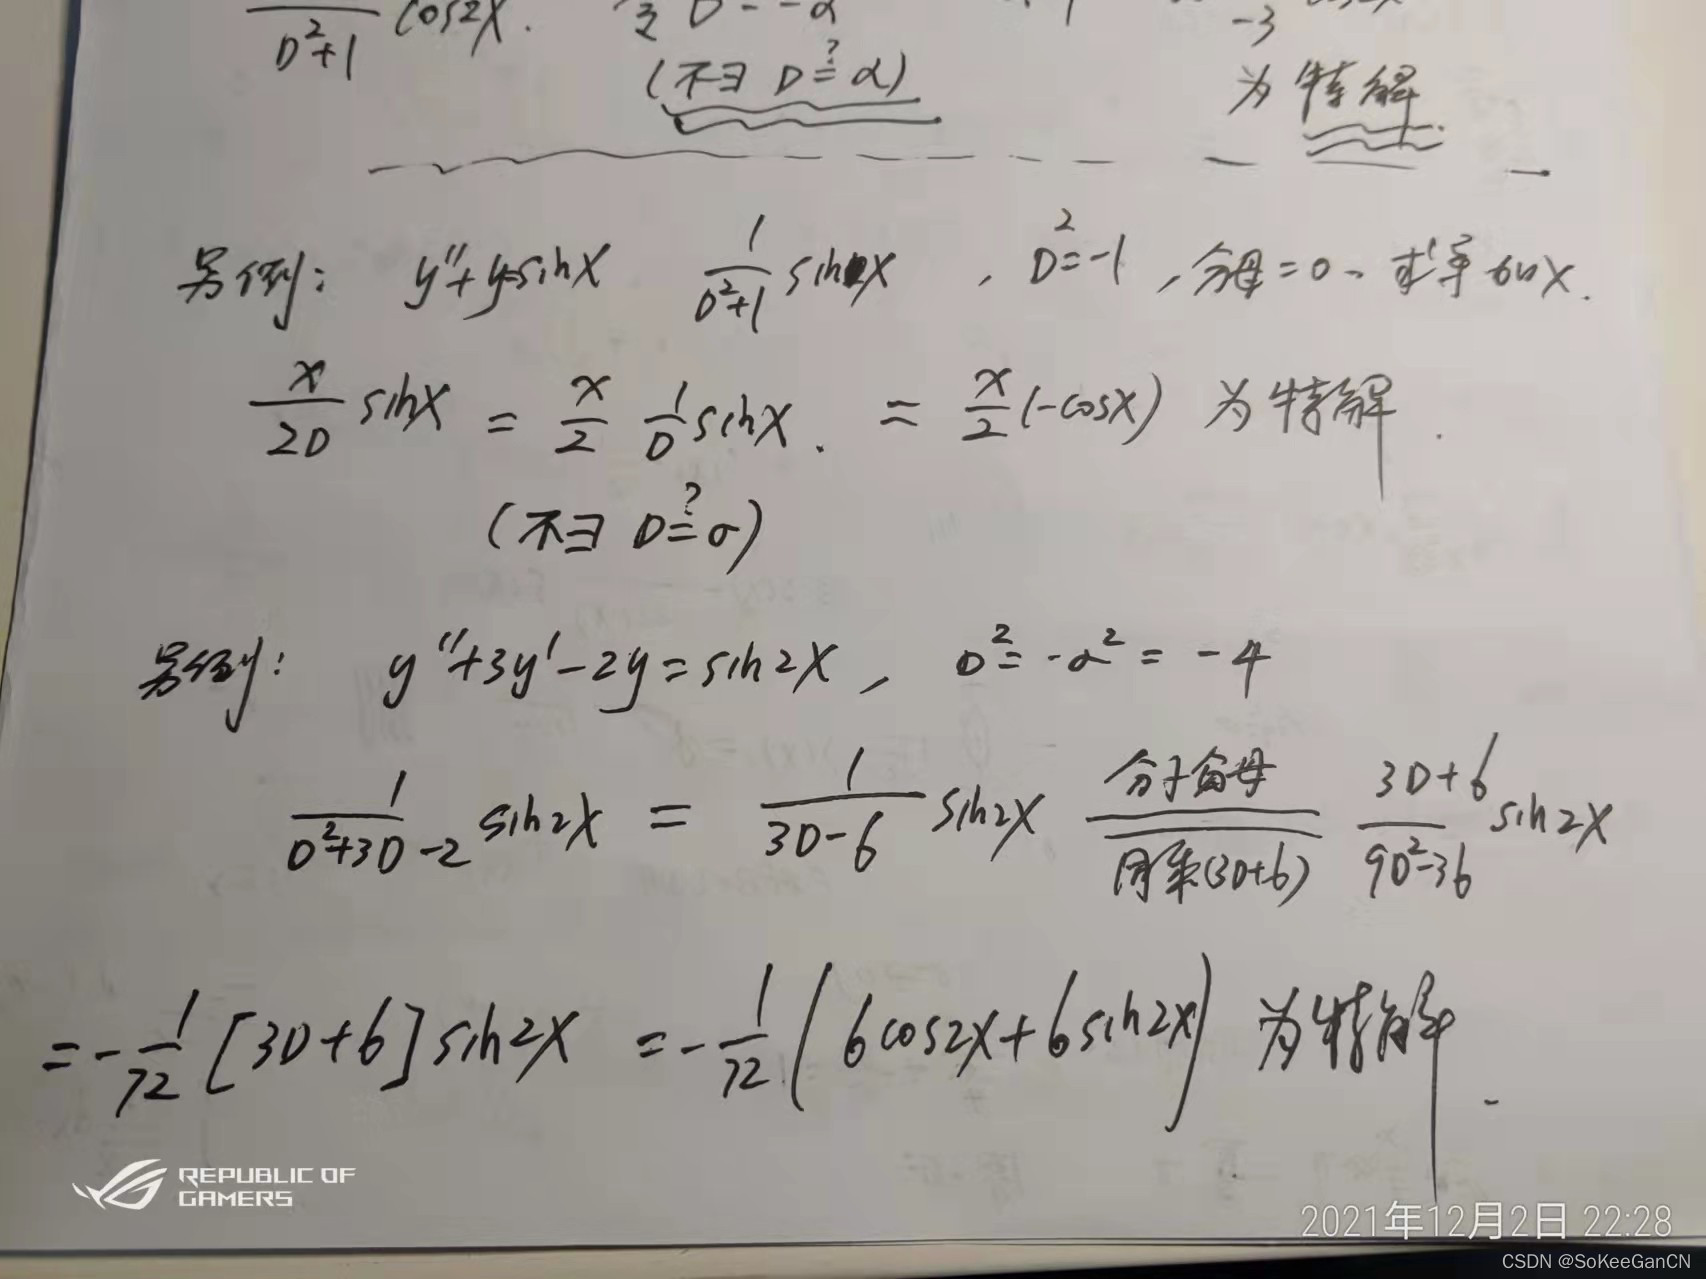 1/(D²+1) cos2x. D² = -α² -3
(不是 D=?α) 为特解
另例: y''+y=sinx 1/(D²+1) sinx , D²=-1 ,分母=0、求导 乘x.
x/(2D) sinx = x/2 1/D sinx. = x/2 (-cosx) 为特解.
(不是 D=?0)
另例: y''+3y'-2y=sin2x , D²=-α²=-4
1/(D²+3D-2) sin2x = 1/(3D-6) sin2x 分子分母同乘(3D+6) (3D+6)/(9D²-36) sin2x
=-1/72 [3D+6] sin2x =-1/72 (6cos2x+6sin2x) 为特解.
REPUBLIC OF
GAMERS
2021年12月2日 22:28
CSDN @SoKeeGanCN